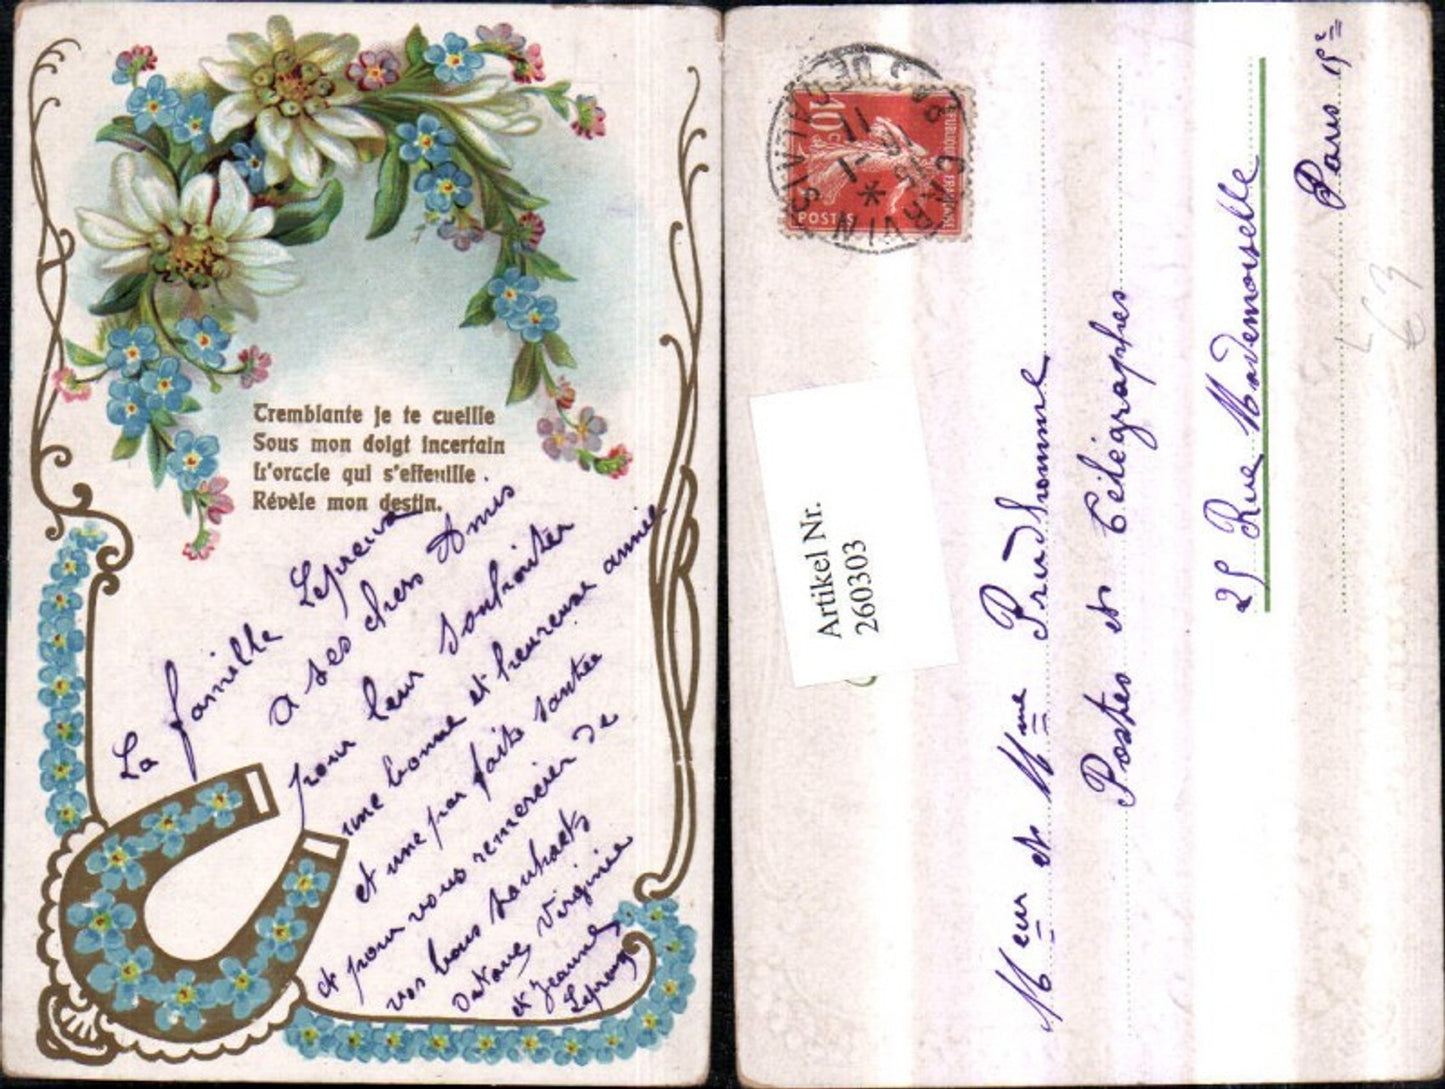 Tremblante je te cueille
Sous mon doigt incertain
L'oracle qui s'effeuille
Révèle mon destin.
La famille Lepreux
a ses chers Amis
pour leur souhaiter
une bonne et heureuse année
et une parfaite santée
et pour vous remercier de
vos bons souhaits
Virginie
et Jeanne
POSTES
10c
Artikel Nr.
260303
Meur et Mme Prudhomme
Postes et Télégraphes
25 Rue Mademoiselle
Paris 15e